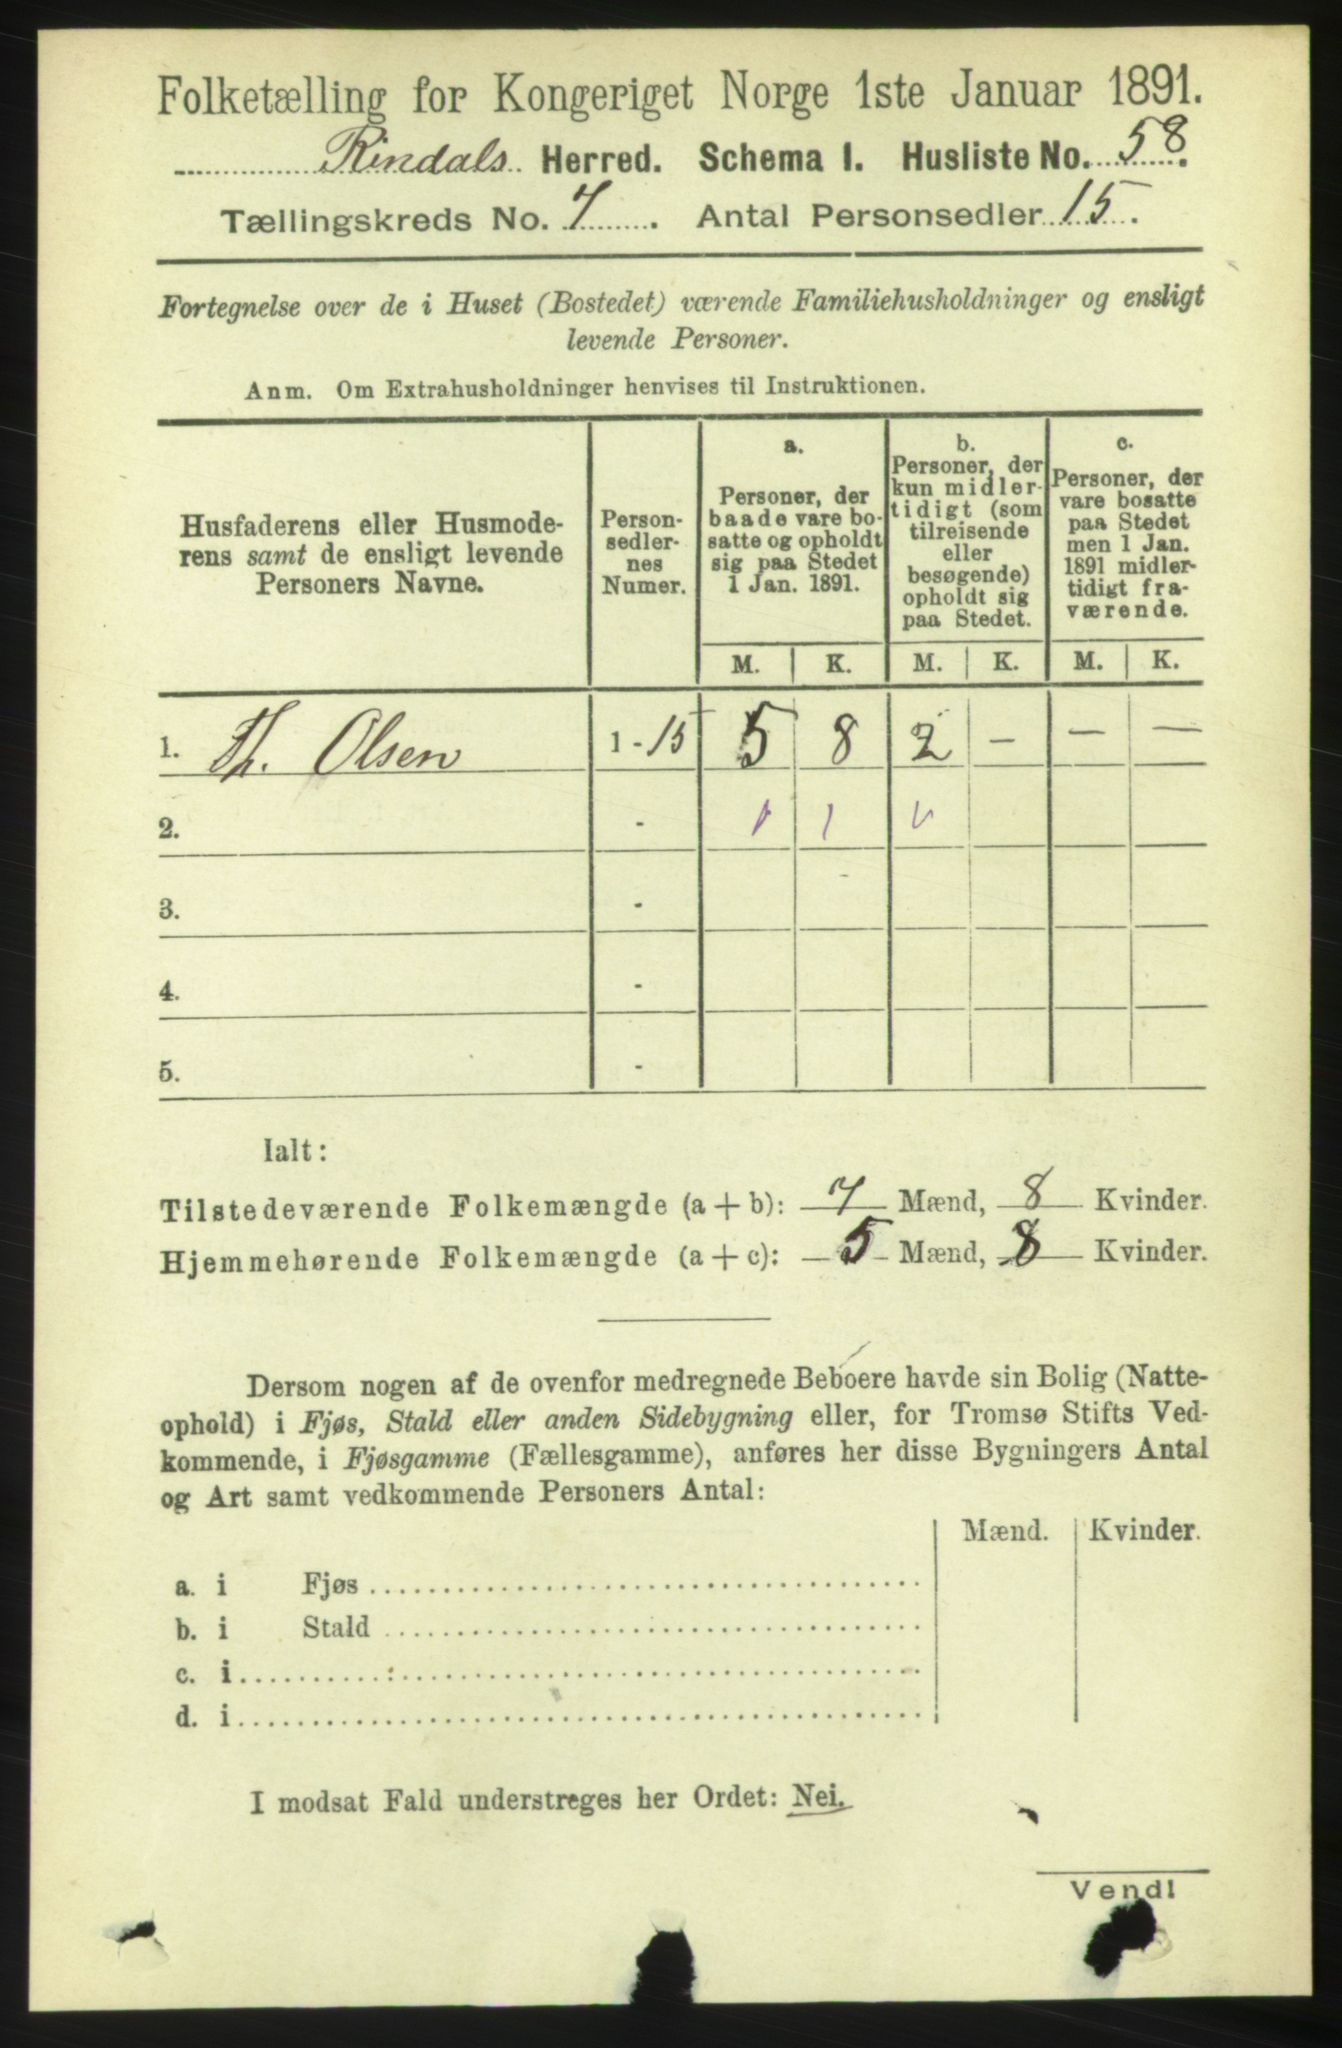 Folketælling for Kongeriget Norge 1ste Januar 1891.
Rindals Herred. Schema I. Husliste No. 58.
Tællingskreds No. 7. Antal Personsedler 15.
Fortegnelse over de i Huset (Bostedet) værende Familiehusholdninger og ensligt
levende Personer.
Anm. Om Extrahusholdninger henvises til Instruktionen.
Husfaderens eller Husmode-
rens samt de ensligt levende
Personers Navne.
Person-
sedler-
nes
Numer.
a.
Personer, der
baade vare bo-
satte og opholdt
sig paa Stedet
1 Jan. 1891.
b.
Personer, der
kun midler-
tidigt (som
tilreisende
eller
besøgende)
opholdt sig
paa Stedet.
c.
Personer, der
vare bosatte
paa Stedet
men 1 Jan.
1891 midler-
tidigt fra-
værende.
M. K. M. K. M. K.
1. Th. Olsen 1-15 5 8 2 - - -
2. -
3. -
4. -
5. -
Ialt:
Tilstedeværende Folkemængde (a + b): 7 Mænd, 8 Kvinder.
Hjemmehørende Folkemængde (a + c): 5 Mænd, 8 Kvinder.
Dersom nogen af de ovenfor medregnede Beboere havde sin Bolig (Natte-
ophold) i Fjøs, Stald eller anden Sidebygning eller, for Tromsø Stifts Ved-
kommende, i Fjøsgamme (Fællesgamme), anføres her disse Bygningers Antal
og Art samt vedkommende Personers Antal:
Mænd. Kvinder.
a. i Fjøs
b. i Stald
c. i
d. i
I modsat Fald understreges her Ordet: Nei.
Vend!